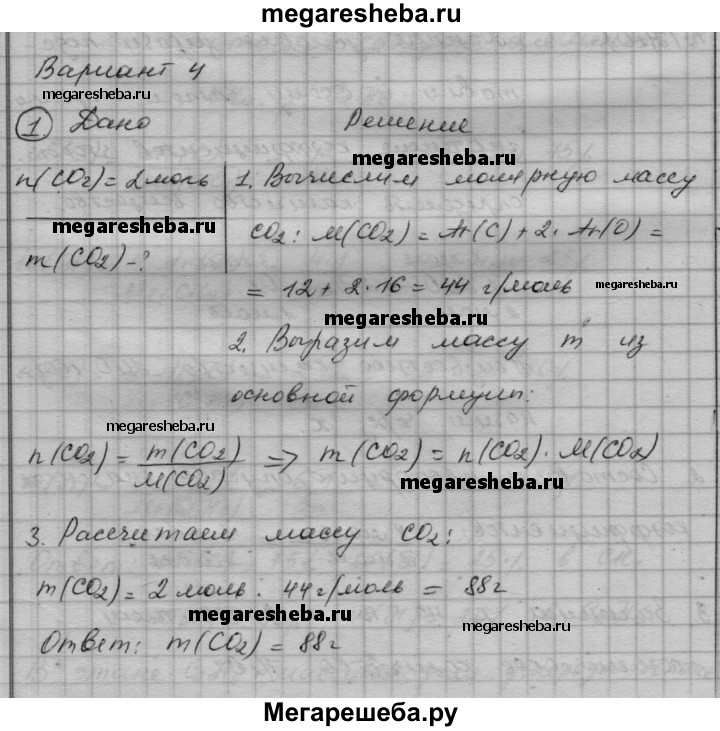 megaresheba.ru
Вариант 4
megaresheba.ru
1 Дано Решение
megaresheba.ru
n(CO2) = 2 моль 1. Вычислим молярную массу
megaresheba.ru
CO2: M(CO2) = Ar(C) + 2 · Ar(O) =
m(CO2) - ?
= 12 + 2 · 16 = 44 г/моль megaresheba.ru
megaresheba.ru
2. Выразим массу m из
основной формулы:
megaresheba.ru
n(CO2) = m(CO2) / M(CO2) => m(CO2) = n(CO2) · M(CO2)
megaresheba.ru
3. Рассчитаем массу CO2:
m(CO2) = 2 моль · 44 г/моль = 88 г
megaresheba.ru megaresheba.ru
Ответ: m(CO2) = 88 г
Мегарешеба.ру